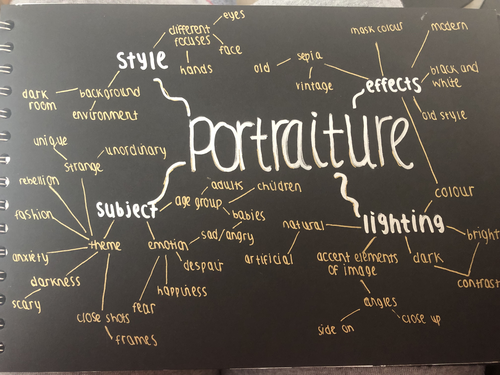 eyes
different
focuses
face
hands
style
dark
room
background
environment
mask colour
modern
sepia
old
vintage
effects
black and
white
old style
colour
portraiture
unique
unordinary
strange
rebellion
fashion
anxiety
darkness
scary
theme
subject
age group
adults
children
babies
emotion
sad/angry
despair
happiness
fear
close shots
frames
lighting
natural
artificial
accent elements
of image
angles
side on
close up
dark
bright
contrast